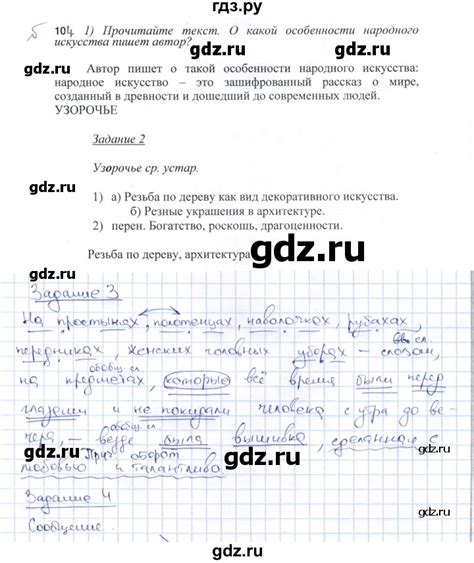 гдз.ру
5 104 1) Прочитайте текст. О какой особенности народного
искусства пишет автор?
gdz.ru gdz.ru
Автор пишет о такой особенности народного искусства:
народное искусство – это зашифрованный рассказ о мире,
созданный в древности и дошедший до современных людей.
УЗОРОЧЬЕ
gdz.ru
Задание 2
Узорочье ср. устар.
gdz.ru gdz.ru
1) а) Резьба по дереву как вид декоративного искусства.
б) Резные украшения в архитектуре.
2) перен. Богатство, роскошь, драгоценности.
Резьба по дереву, архитектура
gdz.ru
Задание 3
На простынях, полотенцах, наволочках, рубахах,
вв. сл.
передниках, женских головных уборах – словом,
обобщ. сл.
на предметах, которые всё время были перед
глазами и не покидали человека с утра до ве-
обобщ. сл.
чера, – везде была вышивка, сделанная с
Прич. оборот
любовью и талантливо.
gdz.ru gdz.ru
gdz.ru
gdz.ru
Задание 4
Сообщение.
gdz.ru